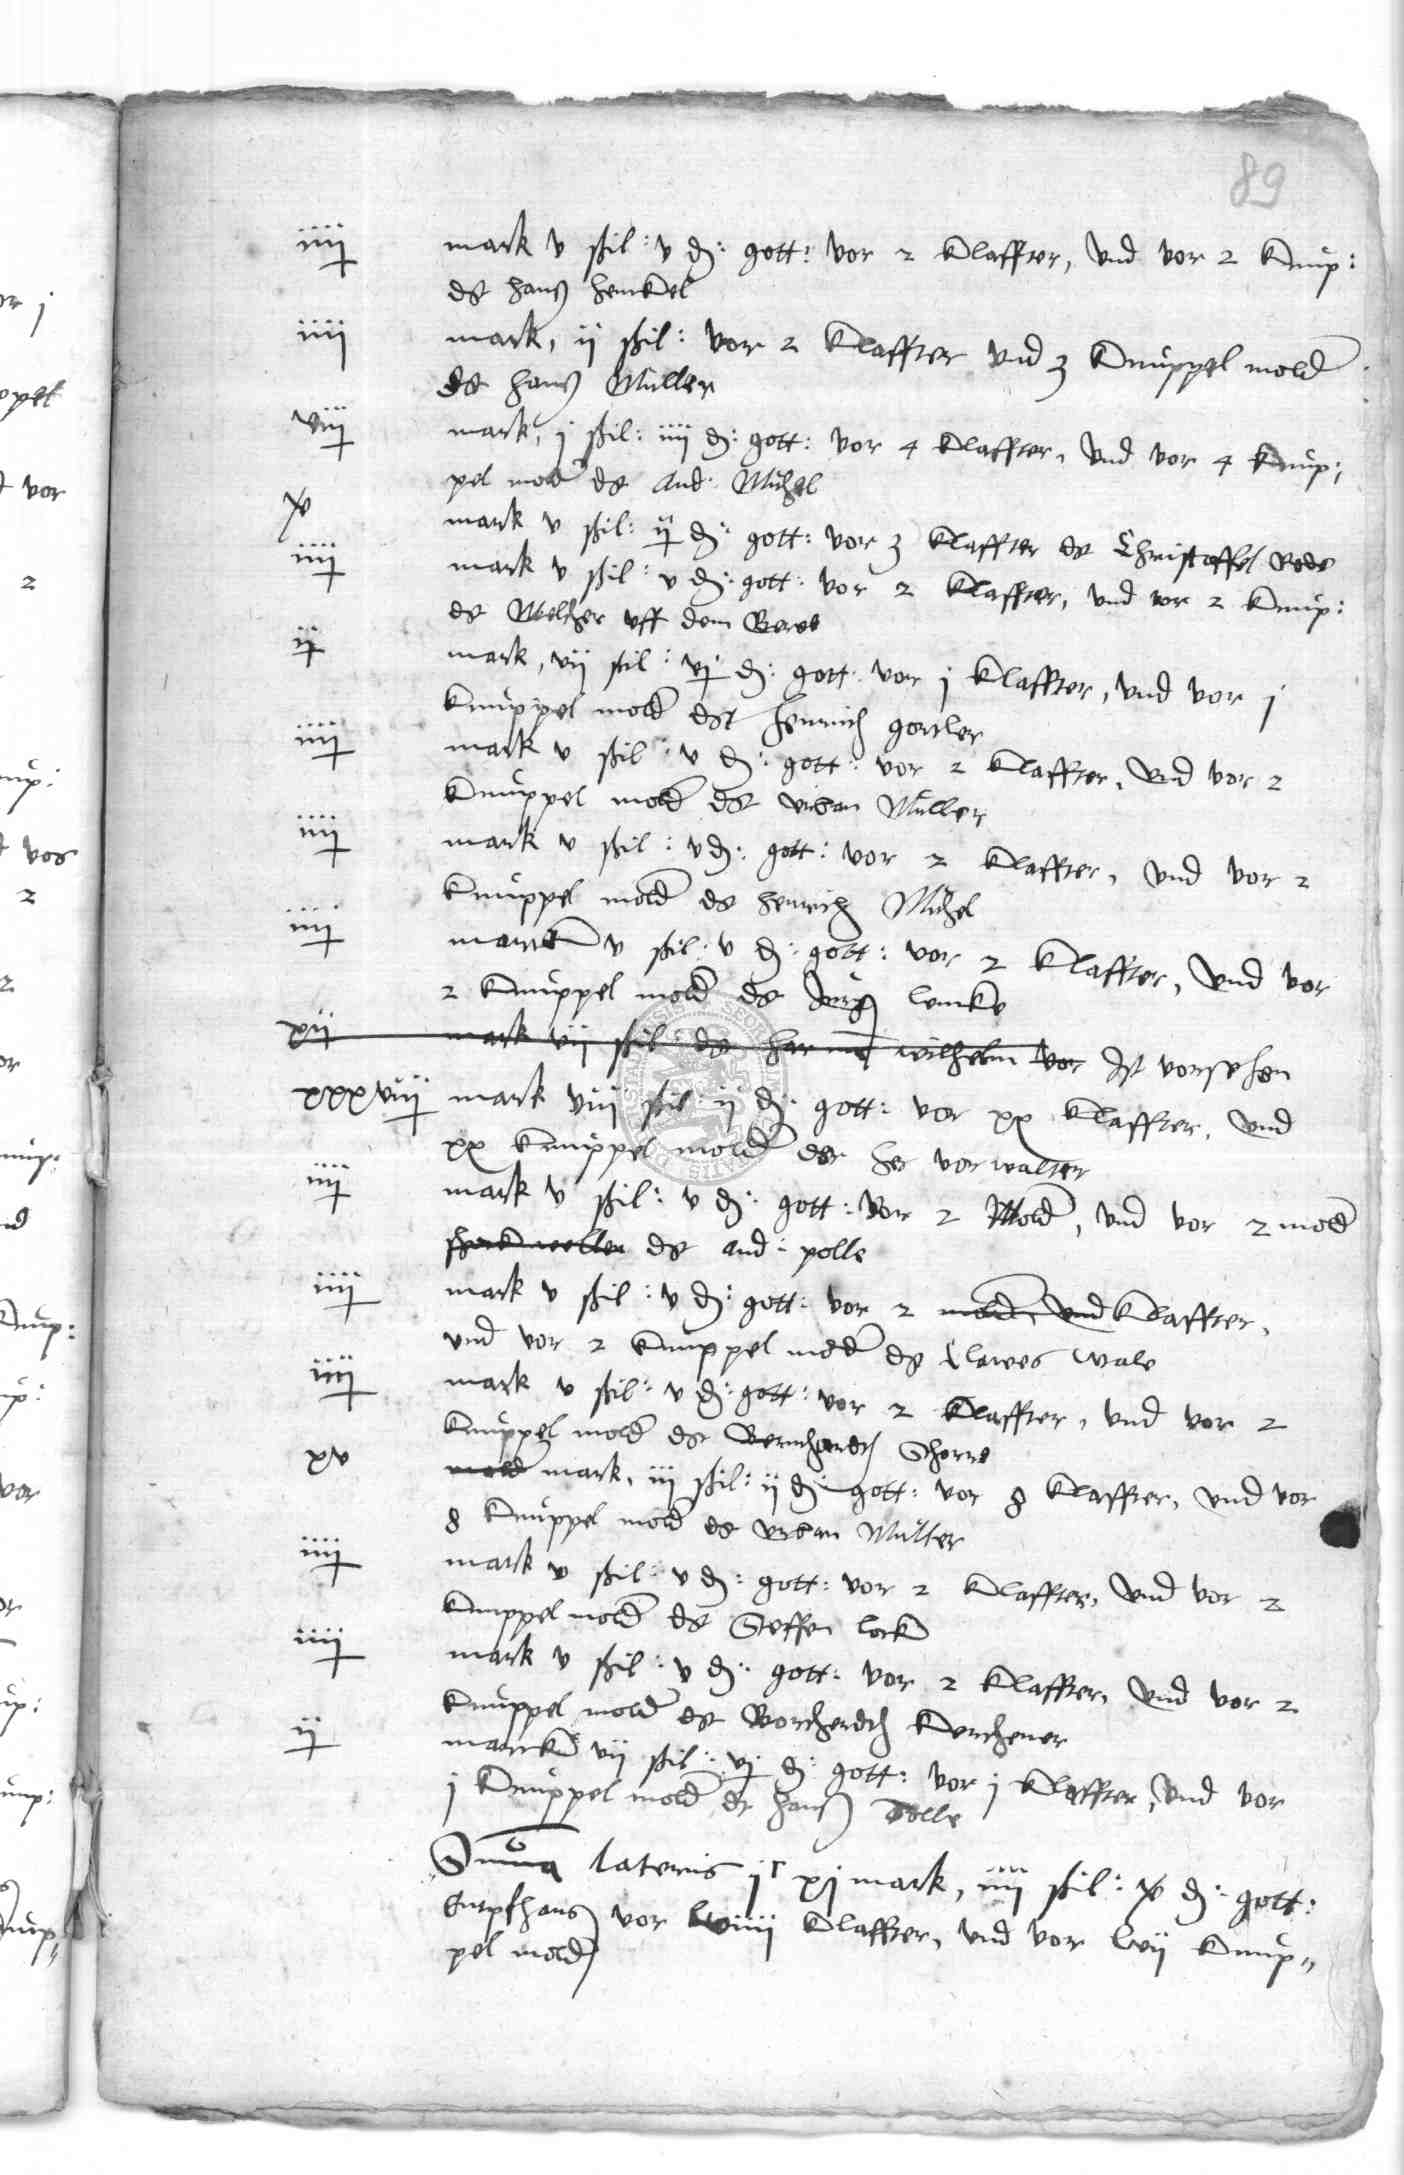 89
iiij mark v ßil: v d: gott: vor 2 Klaffter, vnd vor 2 Knup:
dt hanß henckel
iiij mark, ij ßil: vor 2 Klaffter vnd 3 Knuppel mold
dt hanß Muller
viij mark, j ßil: iiij d: gott: vor 4 Klaffter, vnd vor 4 Knup:
pel mold dt And: Michel
v mark v ßil: ij d: gott: vor 3 Klaffter dt Christoffel Rode
iiij mark v ßil: v d: gott: vor 2 Klaffter, vnd vor 2 Knup:
dt Melcher vff dem Berge
ij mark, vij ßil: vj d: gott: vor j Klaffter, vnd vor j
Knuppel mold dt Henrich
iiij mark v ßil: v d: gott: vor 2 Klaffter, vnd vor 2
Knuppel mold dt Urban Muller
iiij mark v ßil: v d: gott: vor 2 Klaffter, vnd vor 2
Knuppel mold dt Henrich Michel
iiij marck v ßil: v d: gott: vor 2 Klaffter, vnd vor
2 Knuppel mold dt Jurg Lemke
xij mark vij ßil dt wilhelm vor Ist vorsehen
xxxviij mark viij ßil: ij d: gott: vor xx Klaffter, vnd
xx Knuppel mold der her vorwalter
iiij mark v ßil: v d: gott: vor 2 Mold, vnd vor 2 mold
dt And: polle
iiij mark v ßil: v d: gott: vor 2 mold, vnd Klaffter,
vnd vor 2 Knuppel mold dt Clawes wale
iiij mark v ßil: v d: gott: vor 2 Klaffter, vnd vor 2
Knuppel mold dt Bernhardt
xv mold mark, iij ßil: ij d: gott: vor 8 Klaffter, vnd vor
8 Knuppel mold dt Urban Muller
iiij mark v ßil: v d: gott: vor 2 Klaffter, vnd vor 2
Knuppel mold dt Steffen
iiij mark v ßil: v d: gott: vor 2 Klaffter, vnd vor 2
Knuppel mold dt Borcherdt Kerchener
ij marck vij ßil: vj d: gott: vor j Klaffter, vnd vor
j Knuppel mold dt hanß Tolle
Summa lateris jc xj mark, iiij ßil: x d: gott:
Entpfhans vor Klaffter, vnd vor lvij Knup„
pel mold